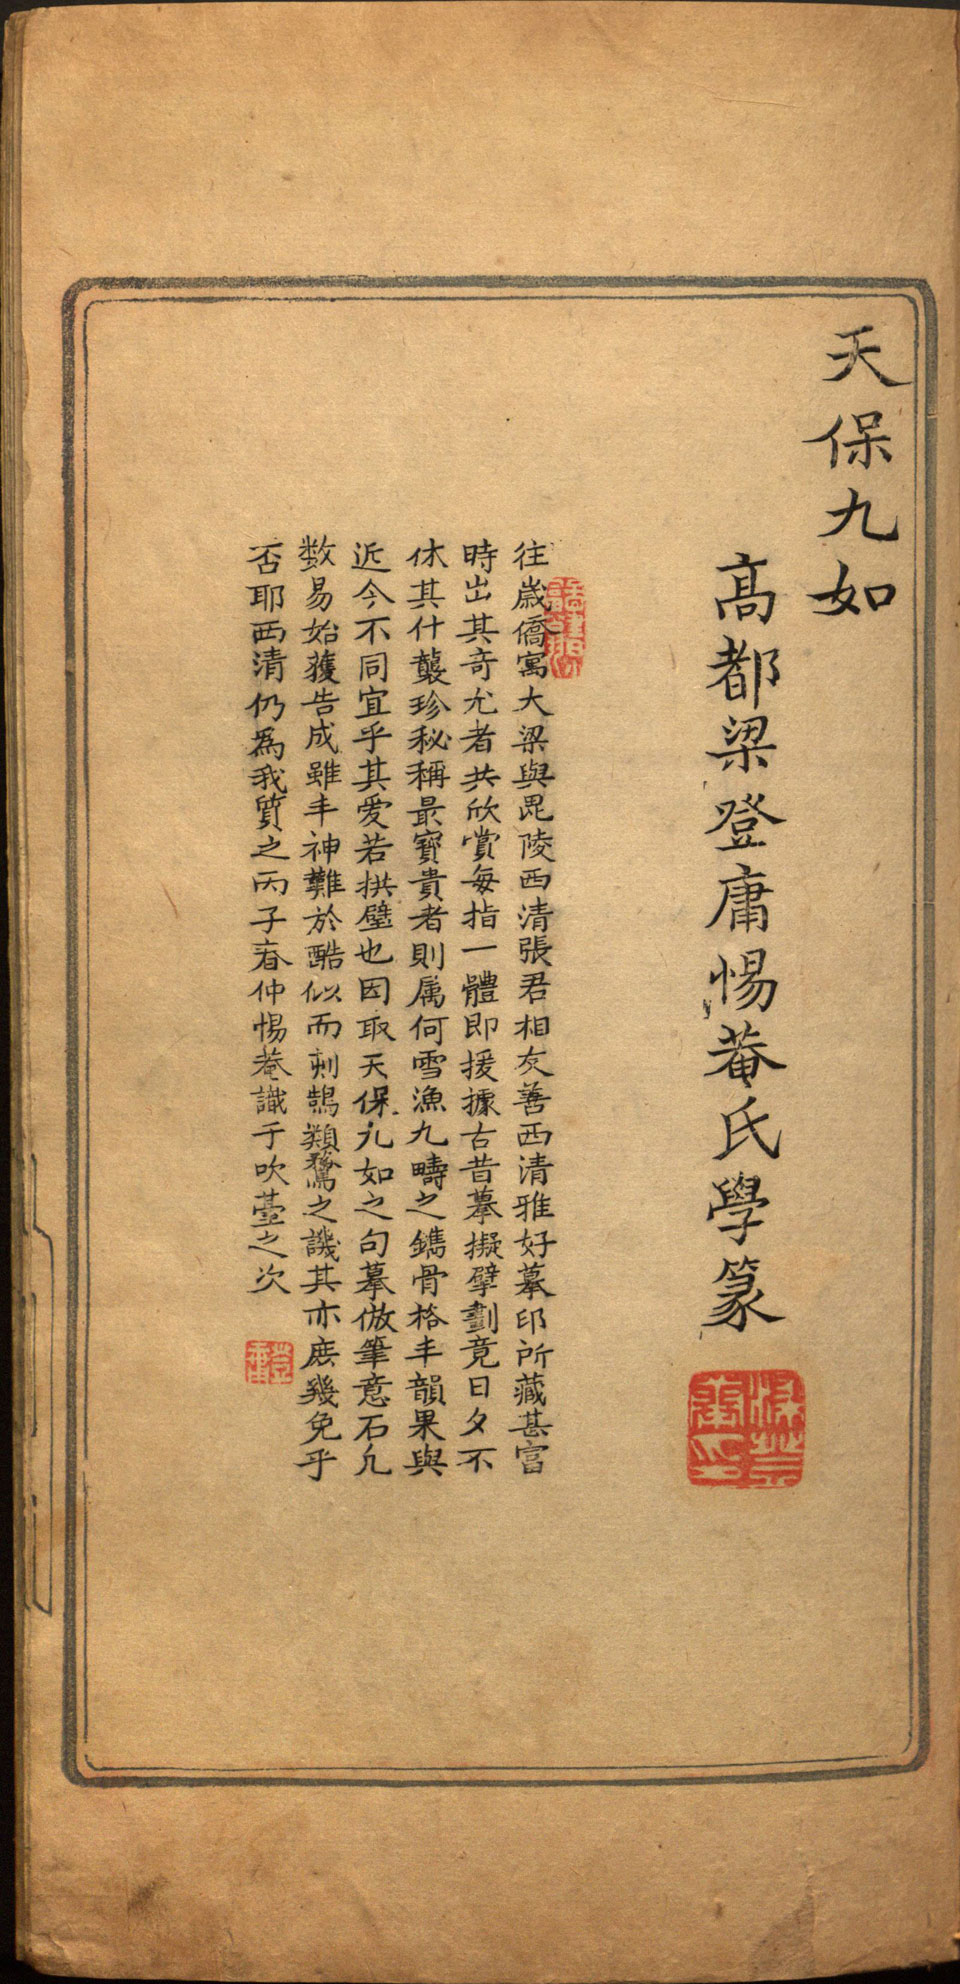 天保九如
高都梁登庸惕菴氏學篆
往歲僑寓大梁與毘陵西清張君相友善西清雅好摹印所藏甚富
時出其奇尤者共欣賞每指一體即援據古昔摹擬擘劃竟日夕不
休其什襲珍秘稱最寶貴者則属何雪漁九疇之鐫骨格丰韻果與
近今不同宜乎其爱若拱璧也因取天保九如之句摹倣筆意石凢
数易始獲告成雖丰神難於酷似而刺鵠類鶩之譏其亦庶幾免乎
否耶西清仍爲我質之丙子春仲惕菴識于吹臺之次
梁登庸印
登庸